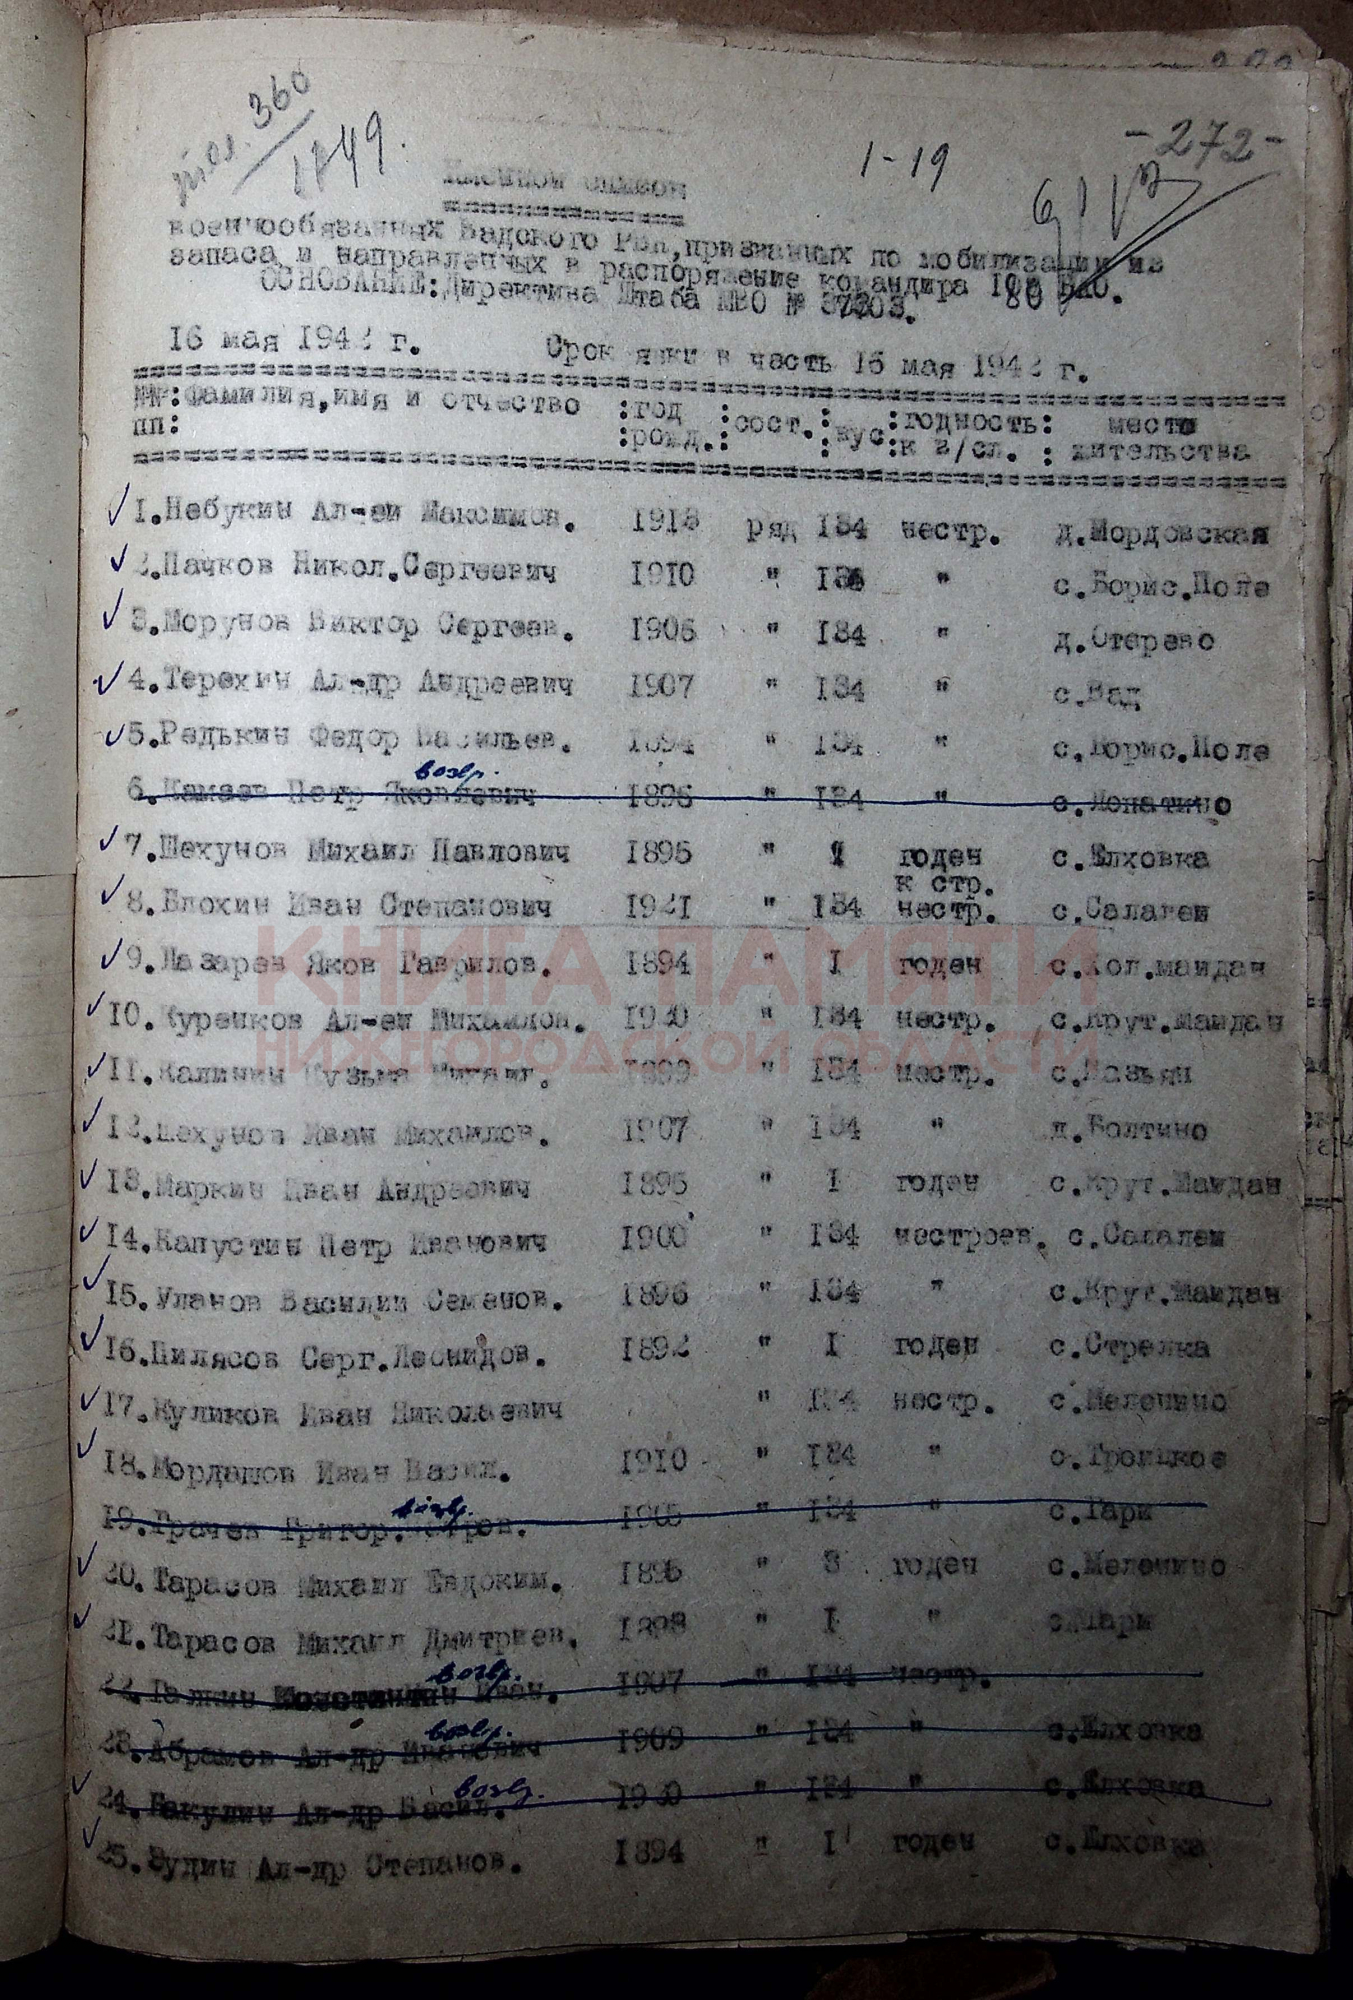 360
1749.
1-19
-272-
Именной список
военнообязанных Вадского РВК, призванных по мобилизации из
запаса и направленных в распоряжение командира
ОСНОВАНИЕ: Директива Штаба МВО №
16 мая 1942 г. Срок явки в часть 16 мая 1942 г.
№№:Фамилия, имя и отчество :год :сост.:вус:годность: место
пп: :рожд.: : :к в/сл. : жительства
1.Небукин Ал-ей Максимов. 1918 ряд 134 нестр. д.Мордовская
2.Пачков Никол.Сергеевич 1910 " 134 " с.Борис.Поле
3.Морунов Виктор Сергеев. 1905 " 134 " д.Отерево
4.Терехин Ал-др Андреевич 1907 " 134 " с.Вад
5.Редькин Федор Васильев. 1894 " 134 " с.Борис.Поле
возвр.
6.Камаев Петр Яковлевич 1896 " 134 " с.Лопатино
7.Шехунов Михаил Павлович 1895 " 1 годен с.Елховка
к стр.
8.Блохин Иван Степанович 1921 " 134 нестр. с.Салалеи
КНИГА ПАМЯТИ
9.Лазарев Яков Гаврилов. 1894 " I годен с.Кол.майдан
10.Куренков Ал-ей Михайлов. 1920 " 134 нестр. с.Крут.Майдан
НИЖЕГОРОДСКОЙ ОБЛАСТИ
11.Калинин Кузьма 1899 " 134 нестр.
12.Шехунов Иван Михайлов. 1907 " 134 " д.Болтино
13.Маркин Иван Андреевич 1895 " I годен с.Крут.Майдан
14.Капустин Петр Иванович 1900 " 134 нестроев. с.Салалеи
15.Уланов Василий Семенов. 1896 " 134 " с.Крут.Майдан
16.Пилясов Серг.Леонидов. 1892 " I годен с.Стрелка
17.Куликов Иван Николаевич " 134 нестр. с.Меленино
18.Мордашов Иван Васил. 1910 " 134 " с.Троицкое
возвр.
19.Грачев Григор.Петров. 1905 " 134 " с.Гари
20.Тарасов Михаил Евдоким. 1895 " 3 годен с.Меленино
21.Тарасов Михаил Дмитриев. 1898 " I " с.Гари
возвр.
22.Галкин Константин Иван. 1907 " 134 нестр.
возвр.
23.Абрамов Ал-др Иванович 1909 " 134 " с.Елховка
возвр.
24.Бакулин Ал-др Васил. 1920 " 134 " с.Елховка
25.Зудин Ал-др Степанов. 1894 " I годен с.Елховка